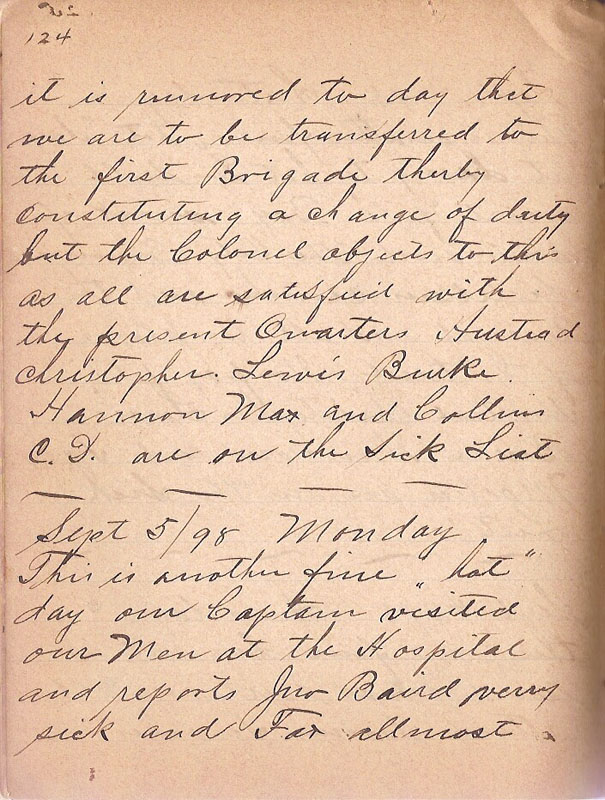 124
it is rumored to day that
we are to be transferred to
the first Brigade therby
constituting a change of duty
but the Colonel objects to this
as all are satisfied with
the present Quarters Hustead
Christopher. Lewis Burke.
Hannon Max and Collins
C. D. are on the Sick List
Sept 5/98 Monday
This is another fine "hot"
day our Captain visited
our Men at the Hospital
and reports Jno Baird verry
sick and Fax allmost